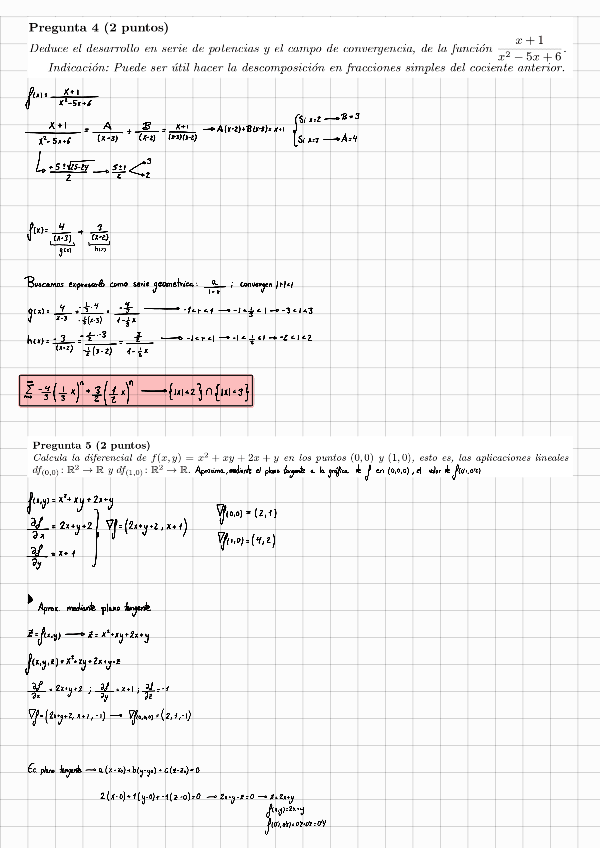 Pregunta 4 (2 puntos)
Deduce el desarrollo en serie de potencias y el campo de convergencia, de la función (x + 1)/(x² − 5x + 6).
Indicación: Puede ser útil hacer la descomposición en fracciones simples del cociente anterior.
f(x) = (x+1)/(x²-5x+6)
(x+1)/(x²-5x+6) = A/(x-3) + B/(x-2) = (x+1)/((x-3)(x-2)) → A(x-2)+B(x-3)=x+1 { Si x=2 → B=-3
Si x=3 → A=4
(+5±√25-24)/2 → (5±1)/2 < 3
2
f(x) = 4/(x-3) + -3/(x-2)
g(x) h(x)
Buscamos expresarlo como serie geométrica: a/(1-r) ; convergen |r|<1
g(x) = 4/(x-3) = (-1/3·4)/(-1/3(x-3)) = (-4/3)/(1-1/3x) → -1<r<1 → -1<x/3<1 → -3<x<3
h(x) = -3/(x-2) = (-1/2·-3)/(-1/2(x-2)) = (3/2)/(1-1/2x) → -1<r<1 → -1<x/2<1 → -2<x<2
∑ -4/3(1/3 x)ⁿ + 3/2(1/2 x)ⁿ → {|x|<2}∩{|x|<3}
Pregunta 5 (2 puntos)
Calcula la diferencial de f(x, y) = x² + xy + 2x + y en los puntos (0, 0) y (1, 0), esto es, las aplicaciones lineales
df₍₀,₀₎ : ℝ² → ℝ y df₍₁,₀₎ : ℝ² → ℝ. Aproxima, mediante el plano tangente a la gráfica de f en (0,0,0), el valor de f(0'1,0'2)
f(x,y) = x²+xy+2x+y
∂f/∂x = 2x+y+2 } ∇f=(2x+y+2, x+1) ∇f(0,0) = (2,1)
∂f/∂y = x+1 ∇f(1,0) = (4,2)
Aprox. mediante plano tangente
z=f(x,y) → z = x²+xy+2x+y
f(x,y,z) = x²+xy+2x+y-z
∂f/∂x = 2x+y+2 ; ∂f/∂y = x+1 ; ∂f/∂z = -1
∇f=(2x+y+2, x+1, -1) → ∇f(0,0,0) = (2,1,-1)
Ec. plano tangente → a(x-x₀)+b(y-y₀)+c(z-z₀)=0
2(x-0)+1(y-0)+-1(z-0)=0 → 2x+y-z=0 → z=2x+y
f(x,y)=2x+y
f(0'1,0'2)=0'2+0'2=0'4